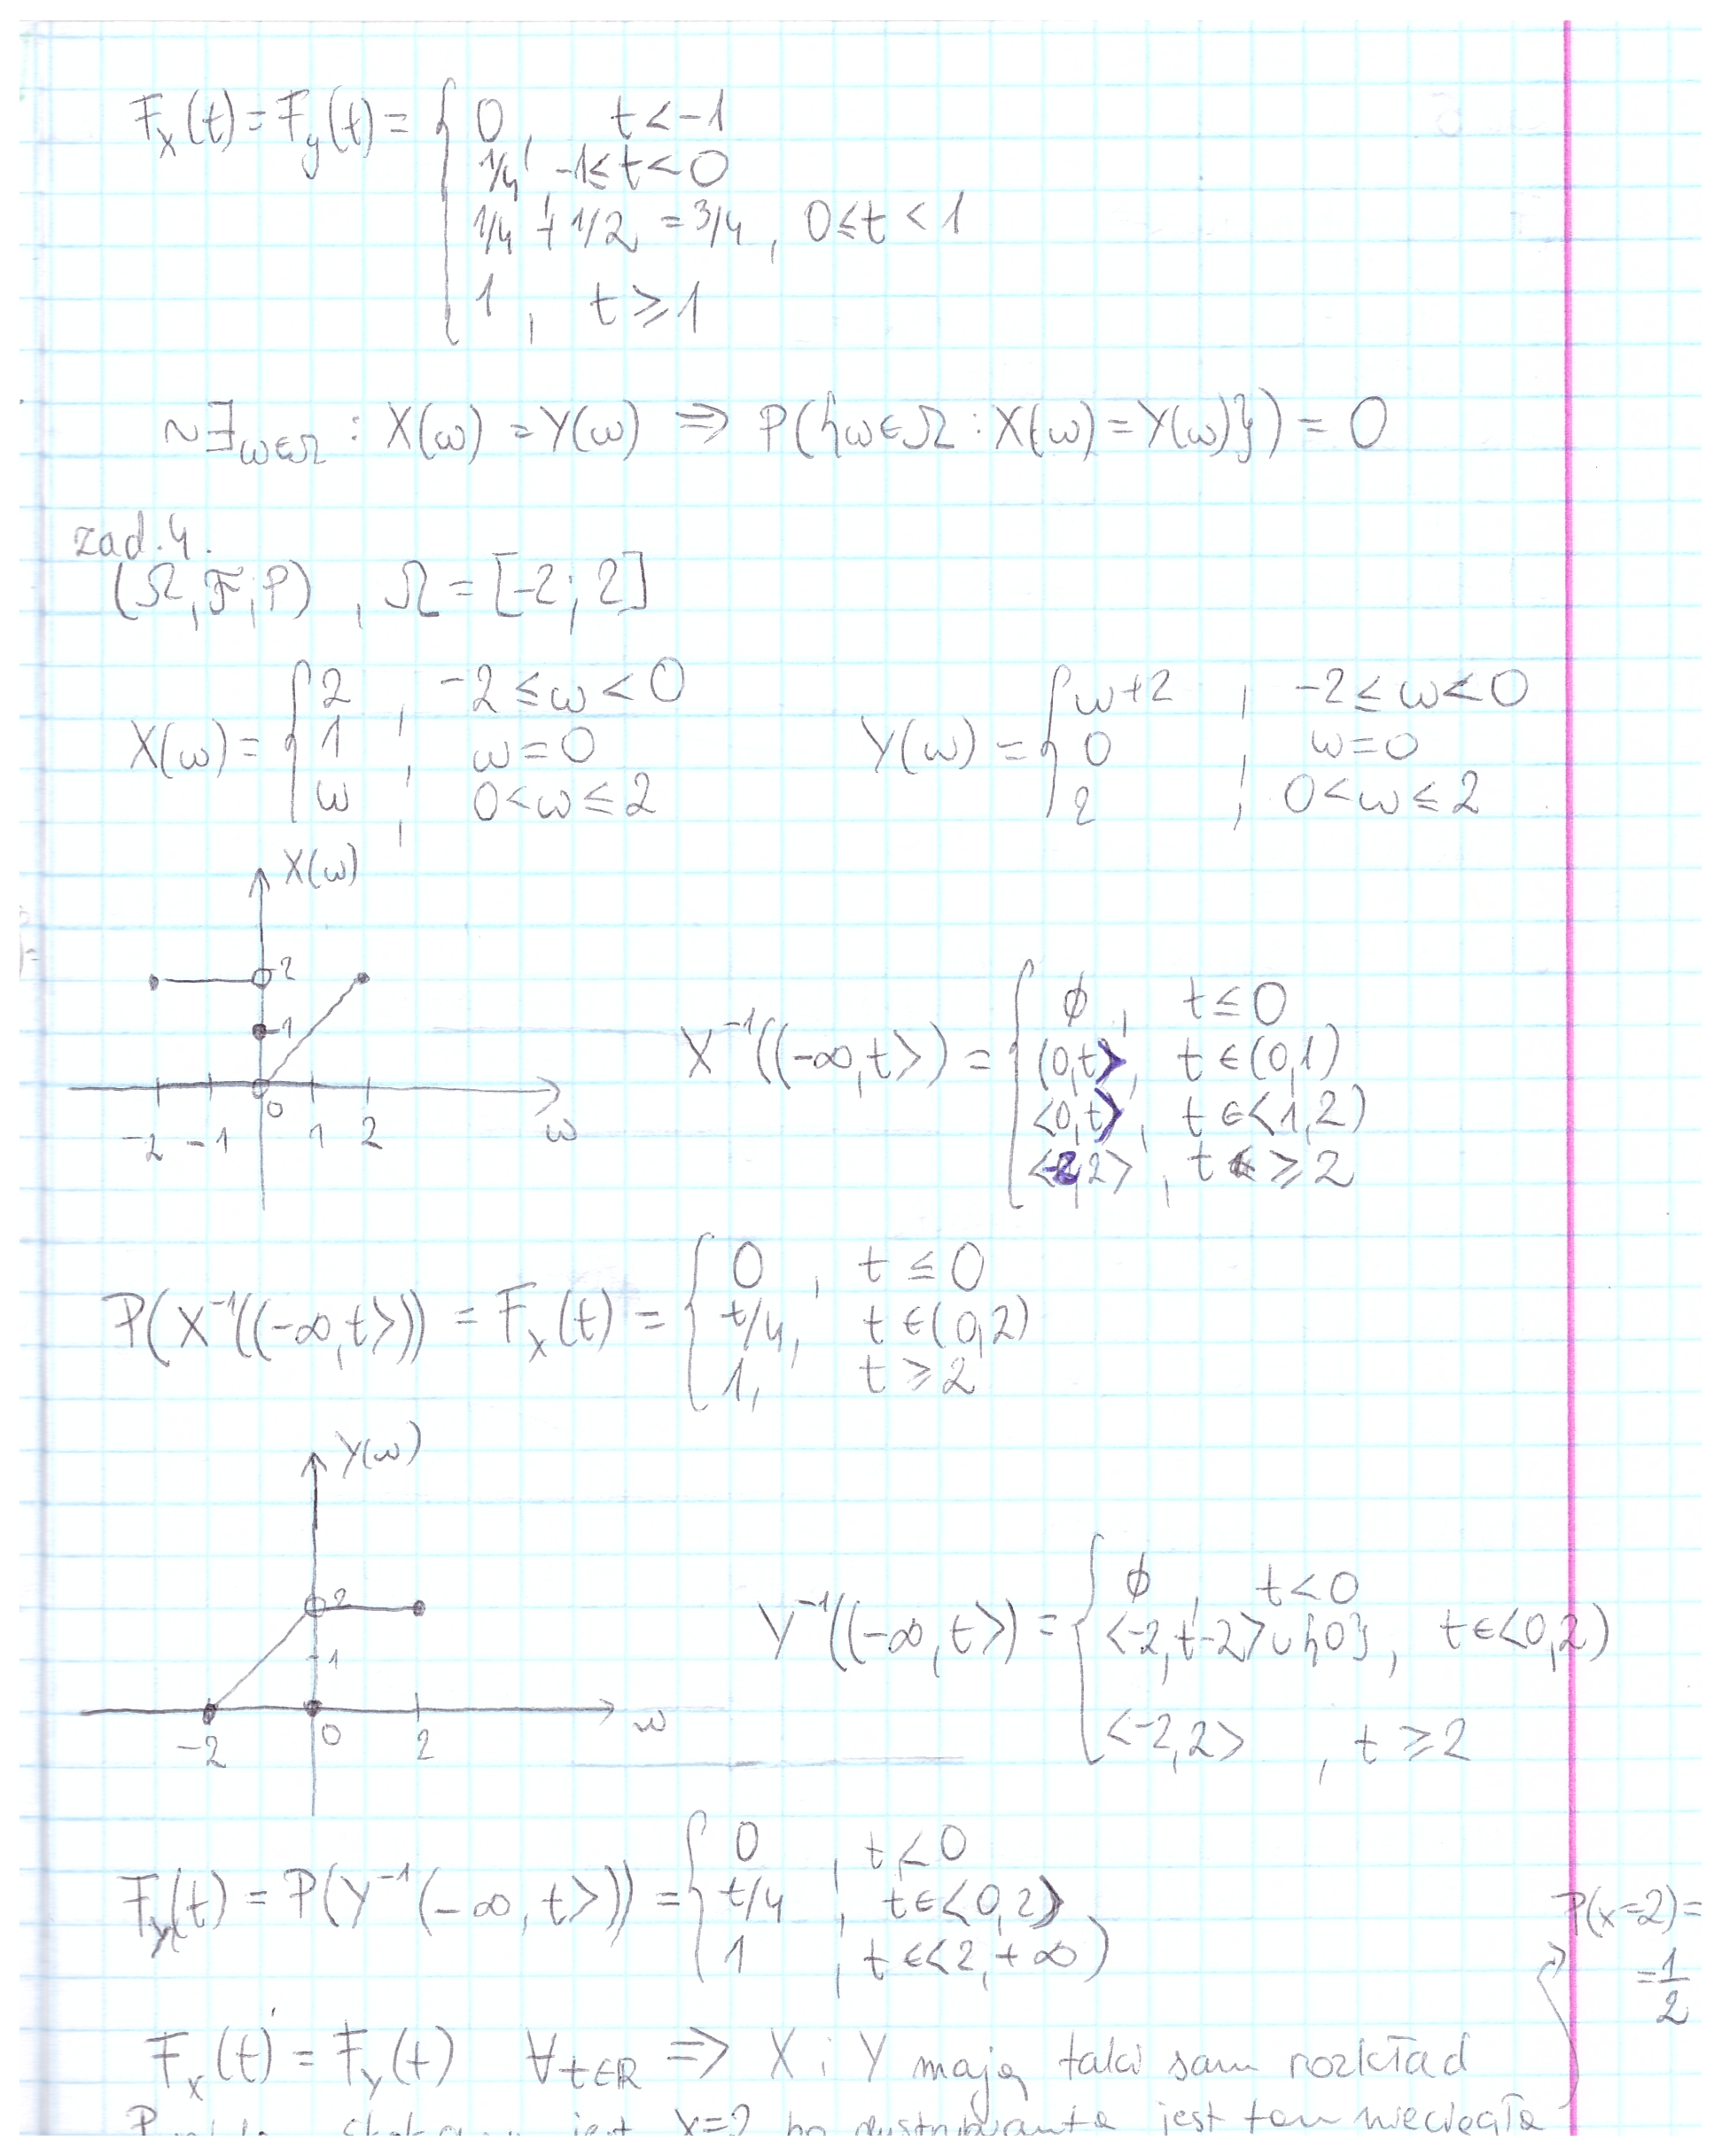 F_x(t) = F_y(t) = { 0, t < -1
1/4, -1 ≤ t < 0
1/4 + 1/2 = 3/4, 0 ≤ t < 1
1, t ⩾ 1
~∃_{ω∈Ω} : X(ω) = Y(ω) ⇒ P({ω∈Ω : X(ω) = Y(ω)}) = 0
zad. 4.
(Ω, F, P), Ω = [-2; 2]
X(ω) = { 2, -2 ≤ ω < 0
1, ω = 0
ω, 0 < ω ≤ 2
Y(ω) = { ω+2, -2 ≤ ω < 0
0, ω = 0
2, 0 < ω ≤ 2
X(ω)
2
1
0
-2 -1 1 2 ω
X⁻¹((-∞, t>) = { ∅, t ≤ 0
(0, t>, t ∈ (0,1)
<0, t>, t ∈ <1, 2)
<-2, 2>, t ⩾ 2
P(X⁻¹((-∞, t>)) = F_x(t) = { 0, t ≤ 0
t/4, t ∈ (0,2)
1, t ⩾ 2
Y(ω)
2
1
-2 0 2 ω
Y⁻¹((-∞, t>) = { ∅, t < 0
<-2, t-2> ∪ {0}, t ∈ <0, 2)
<-2, 2>, t ⩾ 2
F_y(t) = P(Y⁻¹(-∞, t>)) = { 0, t < 0
t/4, t ∈ <0, 2)
1, t ∈ <2, +∞)
P(x=2) =
= 1/2
F_x(t) = F_y(t) ∀_{t∈ℝ} ⇒ X i Y mają taki sam rozkład
jest x=2 bo dystrybuanta jest tam nieciągła